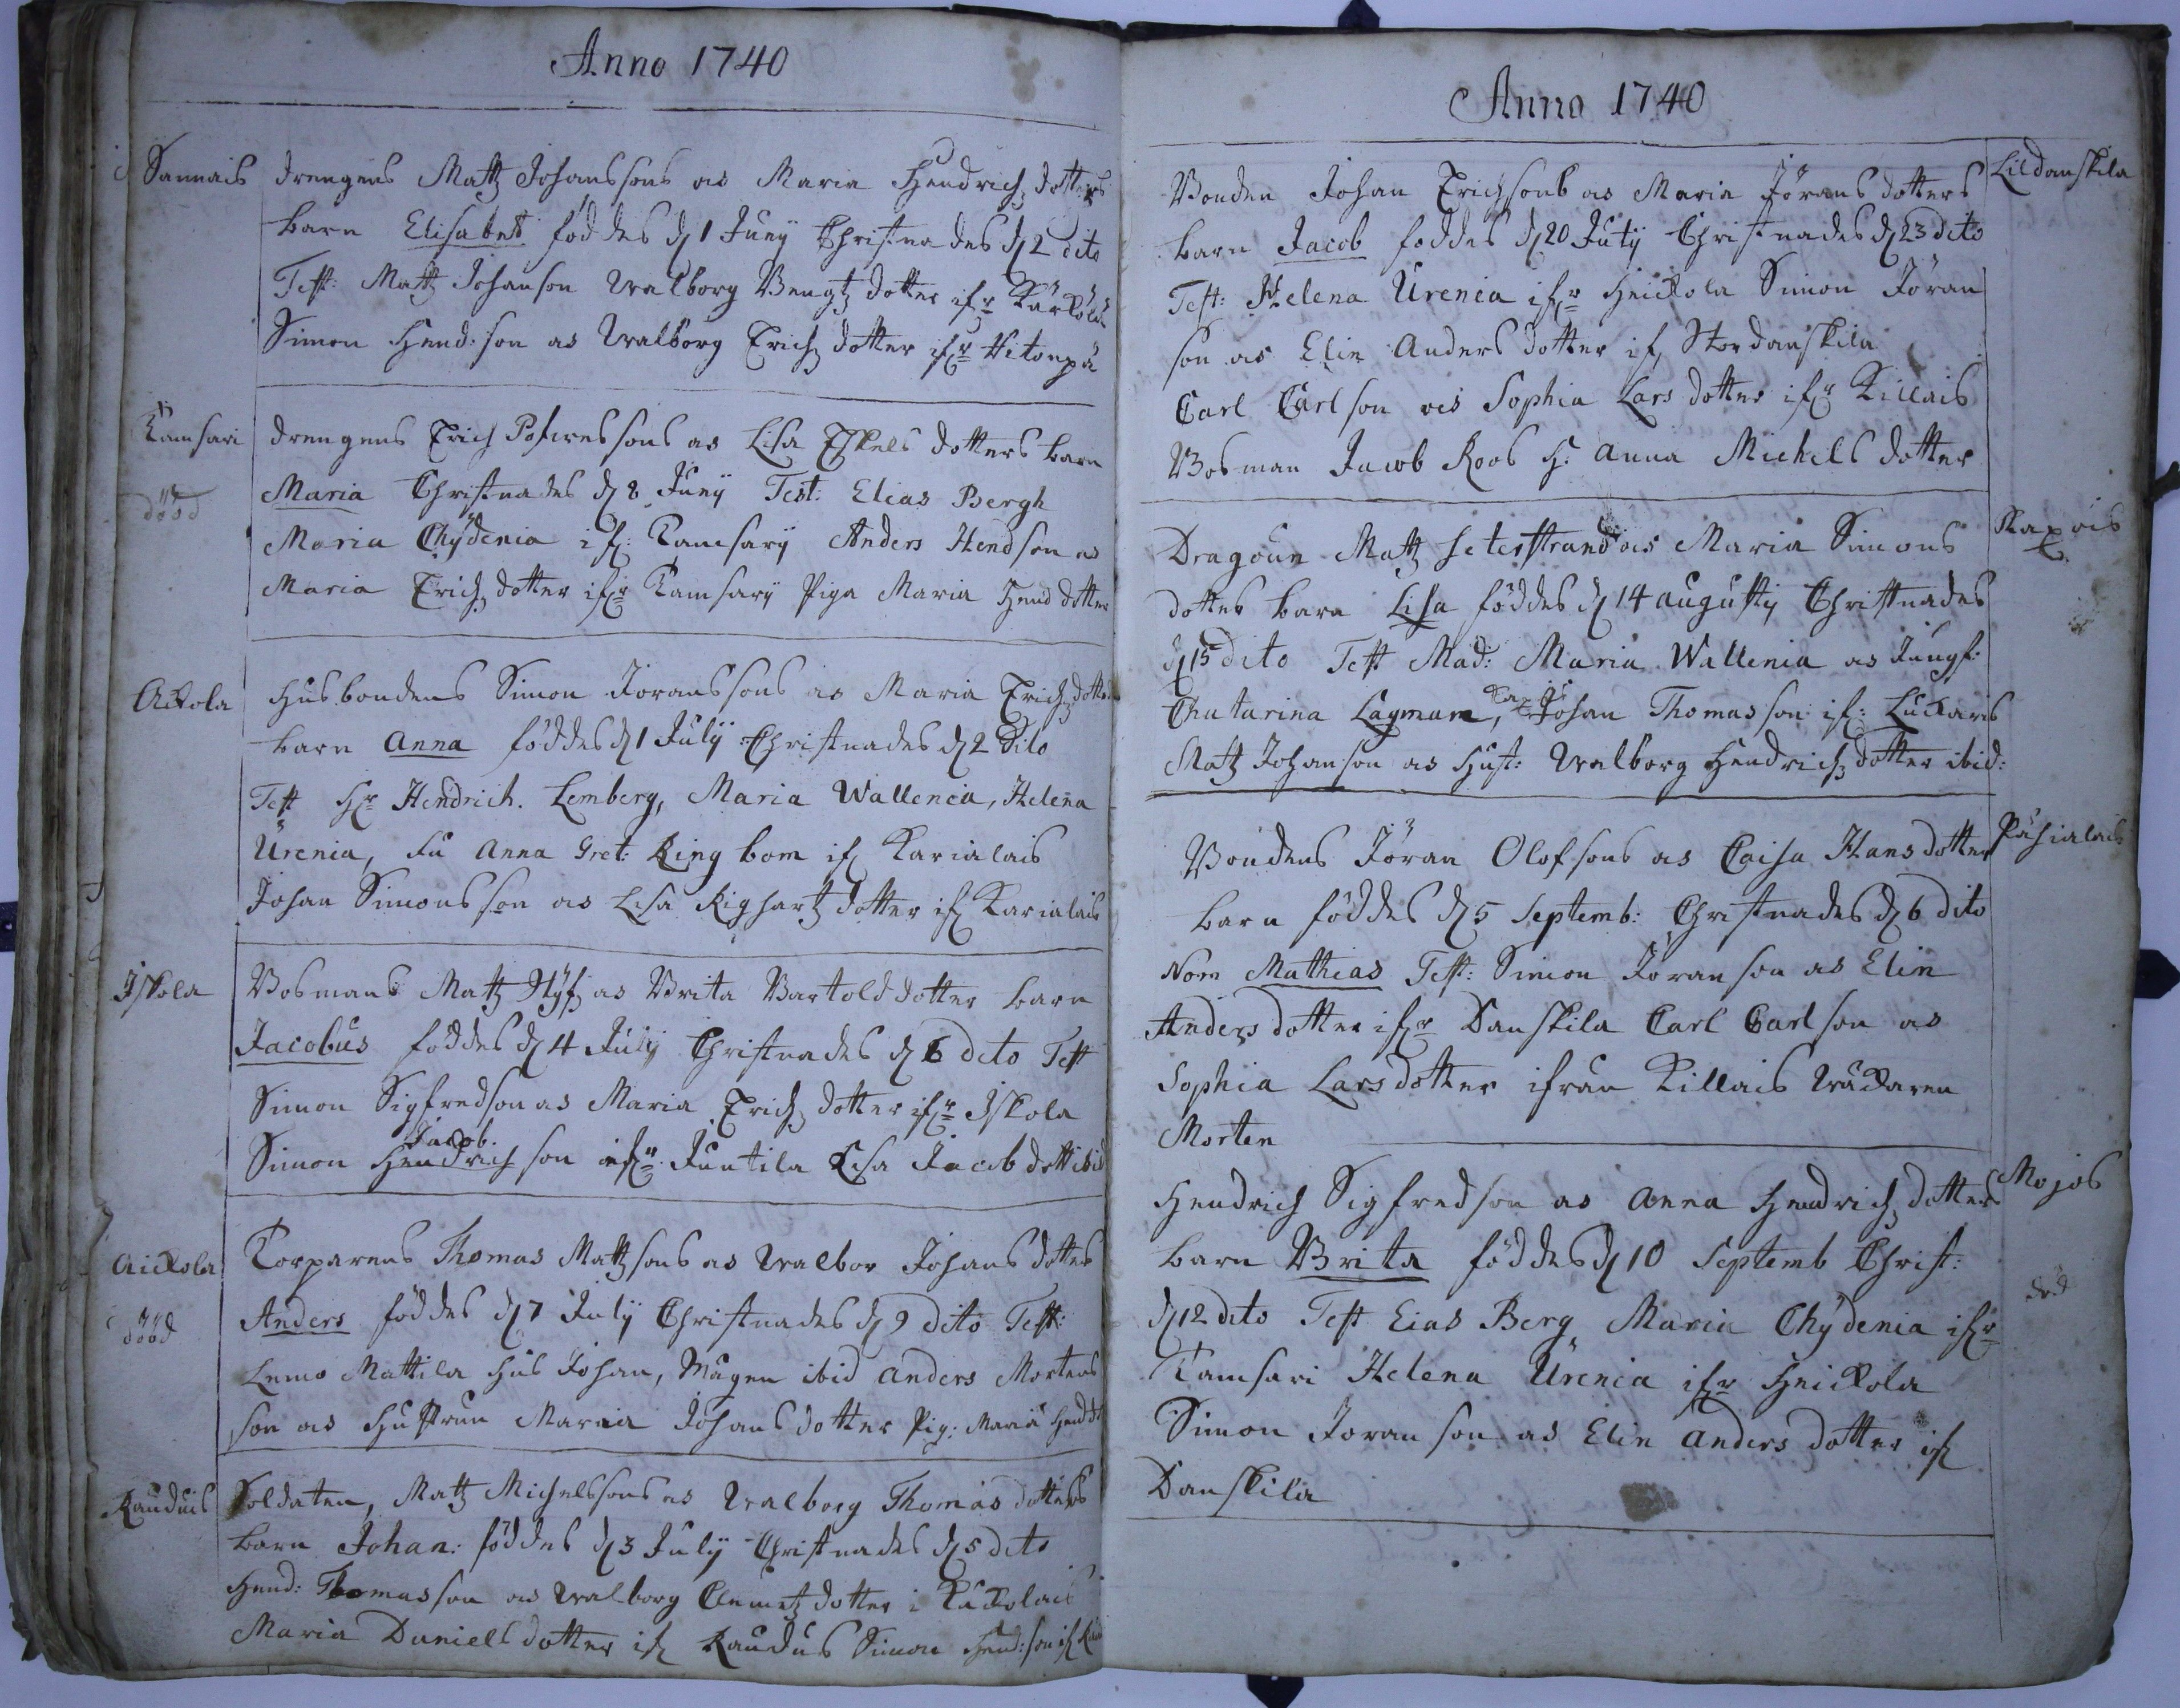 Anno 1740
Sannais drengens Mattz Johanssons as Maria Hendrichz dotters
barn Elisabet föddes d 1 Juny Christnades d 2 dito
Test: Mattz Johanson Walborg Bengtz dotter ifr
Simon Hend: son as Walborg Erichz dotter ifr Hitonpä
Kamsari drengens Erich as Lisa Eskels dotters barn
dööd Maria Christnades d 8 Juny Test: Elias Bergh
Maria Chydenia if: Kamsary Anders Hendson as
Maria Erichz dotter ifr Kamsary Piga Maria Hend dotter
Ackola Husbondens Simon Joranssons as Maria Erichz dotter
barn Anna föddes d 1 July Christnades d 2 dito
Test Hr Hendrich. Lemberg, Maria Wallenia, Helena
Urenia, Fu Anna Gret: Ringbom if Karialais
Johan Simonsson as Lisa Righartz dotter if Karialais
Iskola Bosmans Mattz Styf as Brita Bartold dotter barn
Jacobus föddes d 4 July Christnades d 6 dito Test
Simon Sigfredson as Maria Erichz dotter ifr Iskola
Jacob.
Simon Hendrich son ifr Juntila Lisa Jacob dott ibid
Aickola Torparens Thomas Mattzsons as Walbor Johans dotter
dööd Anders föddes d 7 July Christnades d 9 dito Test:
Lemo Mattila Hus Johan, Mågen ibid Anders Mortens
son as Hustrun Maria Johans dotter Pig: Maria Hend dt
Rauduis Soldaten, Mattz Michelssons as Walborg Thomas dotters
barn Johan: föddes d 3 July Christnades d 5 dito
Hend: Thomasson as Walborg Clemetz dotter i Kuckolais
Maria Daniels dotter if Raudus Simon Hend: son if
Anno 1740
Bonden Johan Erichsons as Maria Jörans dotters Lildanskila
barn Jacob foddes d 20 July Christnades d 23 dito
Test: Helena Urenia ifr Heickola Simon Jöran
son as Elin Anders dotter if Stordanskila
Carl Carlson as Sophia Lars dotter ifr Killais
Bosman Jacob Roos H: Anna Michels dotter
Dragoun Mattz Seterstrand as Maria Simons Kaxois
dotter barn Lisa föddes d 14 augusty Christnades
d 15 dito Test Mad: Maria Wallenia as Jungf:
Chatarina Lagman, Johan Thomasson if: Luckaris
Mattz Johanson as Hust: Walborg Hendrichz dotter ibid:
Bondens Jöran Olofsons as Caisa Hans dotter Pähialais
barn föddes d 5 Septemb: Christnades d 6 dito
Nom Mathias Test: Simon Jöranson as Elin
Anders dotter ifr Danskila Carl Carlson as
Sophia Larsdotter ifrån Killais Wäckaren
Morten
Hendrich Sigfredson as Anna Hendrichz dotters Mojos
barn Brita föddes d 10 Septemb Christ:
d 12 dito Test Eias Berg, Maria Chydenia ifr död
Kamsari Helena Urenia ifr Heickola
Simon Joran son as Elin Anders dotter if
Danskila